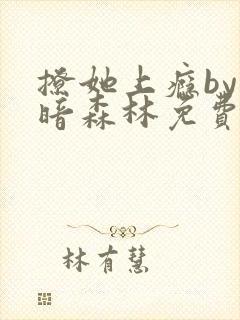 撩她上瘾by
暗森林免費
林有慧